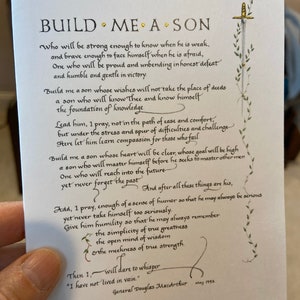 BUILD · ME · A · SON
Who will be strong enough to know when he is weak,
and brave enough to face himself when he is afraid,
One who will be proud and unbending in honest defeat
and humble and gentle in victory
Build me a son whose wishes will not take the place of deeds
a son who will know Thee and know himself
the foundation of knowledge
Lead him, I pray, not in the path of ease and comfort,
but under the stress and spur of difficulties and challenge
Here let him learn compassion for those who fail
Build me a son whose heart will be clear, whose goal will be high
a son who will master himself before he seeks to master other men
One who will reach into the future
yet never forget the past
And after all these things are his,
Add, I pray, enough of a sense of humor so that he may always be serious
yet never take himself too seriously
Give him humility, so that he may always remember
the simplicity of true greatness
the open mind of wisdom
the meekness of true strength
Then I, will dare to whisper
"I have not lived in vain."
General Douglas MacArthur may 1952